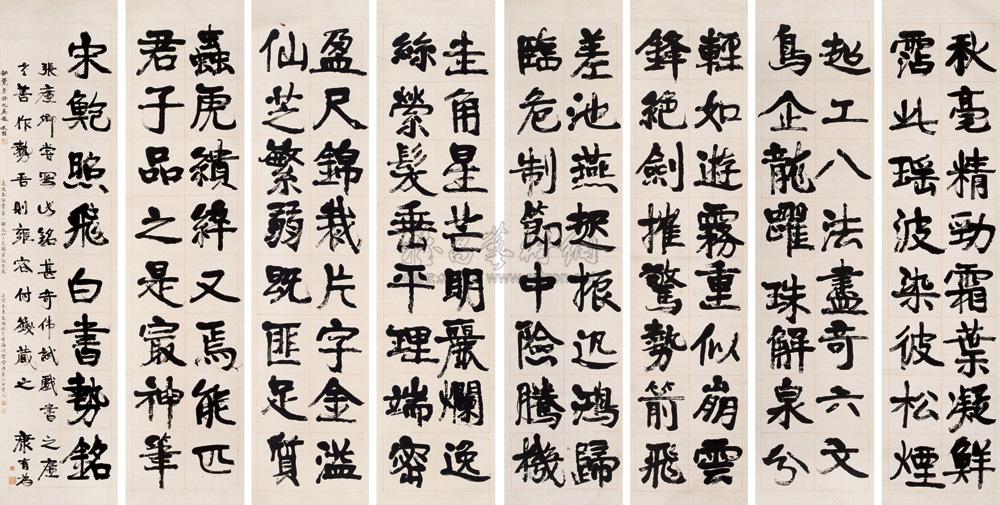 秋毫精勁霜葉凝鮮
霑此瑤波染彼松煙
超工八法盡奇六文
鳥企龍躍珠解泉分
輕如遊霧重似崩雲
鋒絕劍摧驚勢箭飛
差池燕起振迅鴻歸
臨危制節中險騰機
圭角星芒明麗爛逸
絲縈髮垂平理端密
盈尺錦裁片字金濫
仙芝繁弱既匪足質
蟲虎續緯又焉能匹
君子品之是最神筆
宋鮑照飛白書勢銘
張廉卿嘗寫此銘甚奇偉試戲書之廉
之善作勢吾則雍容付籛藏之 康有為